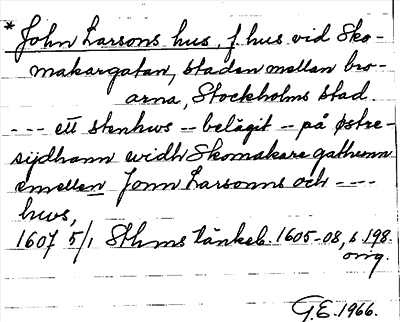 * John Larsons hus, f. hus vid Sko-
makargatan, staden mellan bro-
arna, Stockholms stad.
--- ett stenhws -- belägit -- på østre-
sijdhann widh Skomakare gathunn
emellen Jonn Larsonns och ----
hws,
1607 5/1 Sthms tänkeb. 1605-08, s 198.
orig.
G.E. 1966.